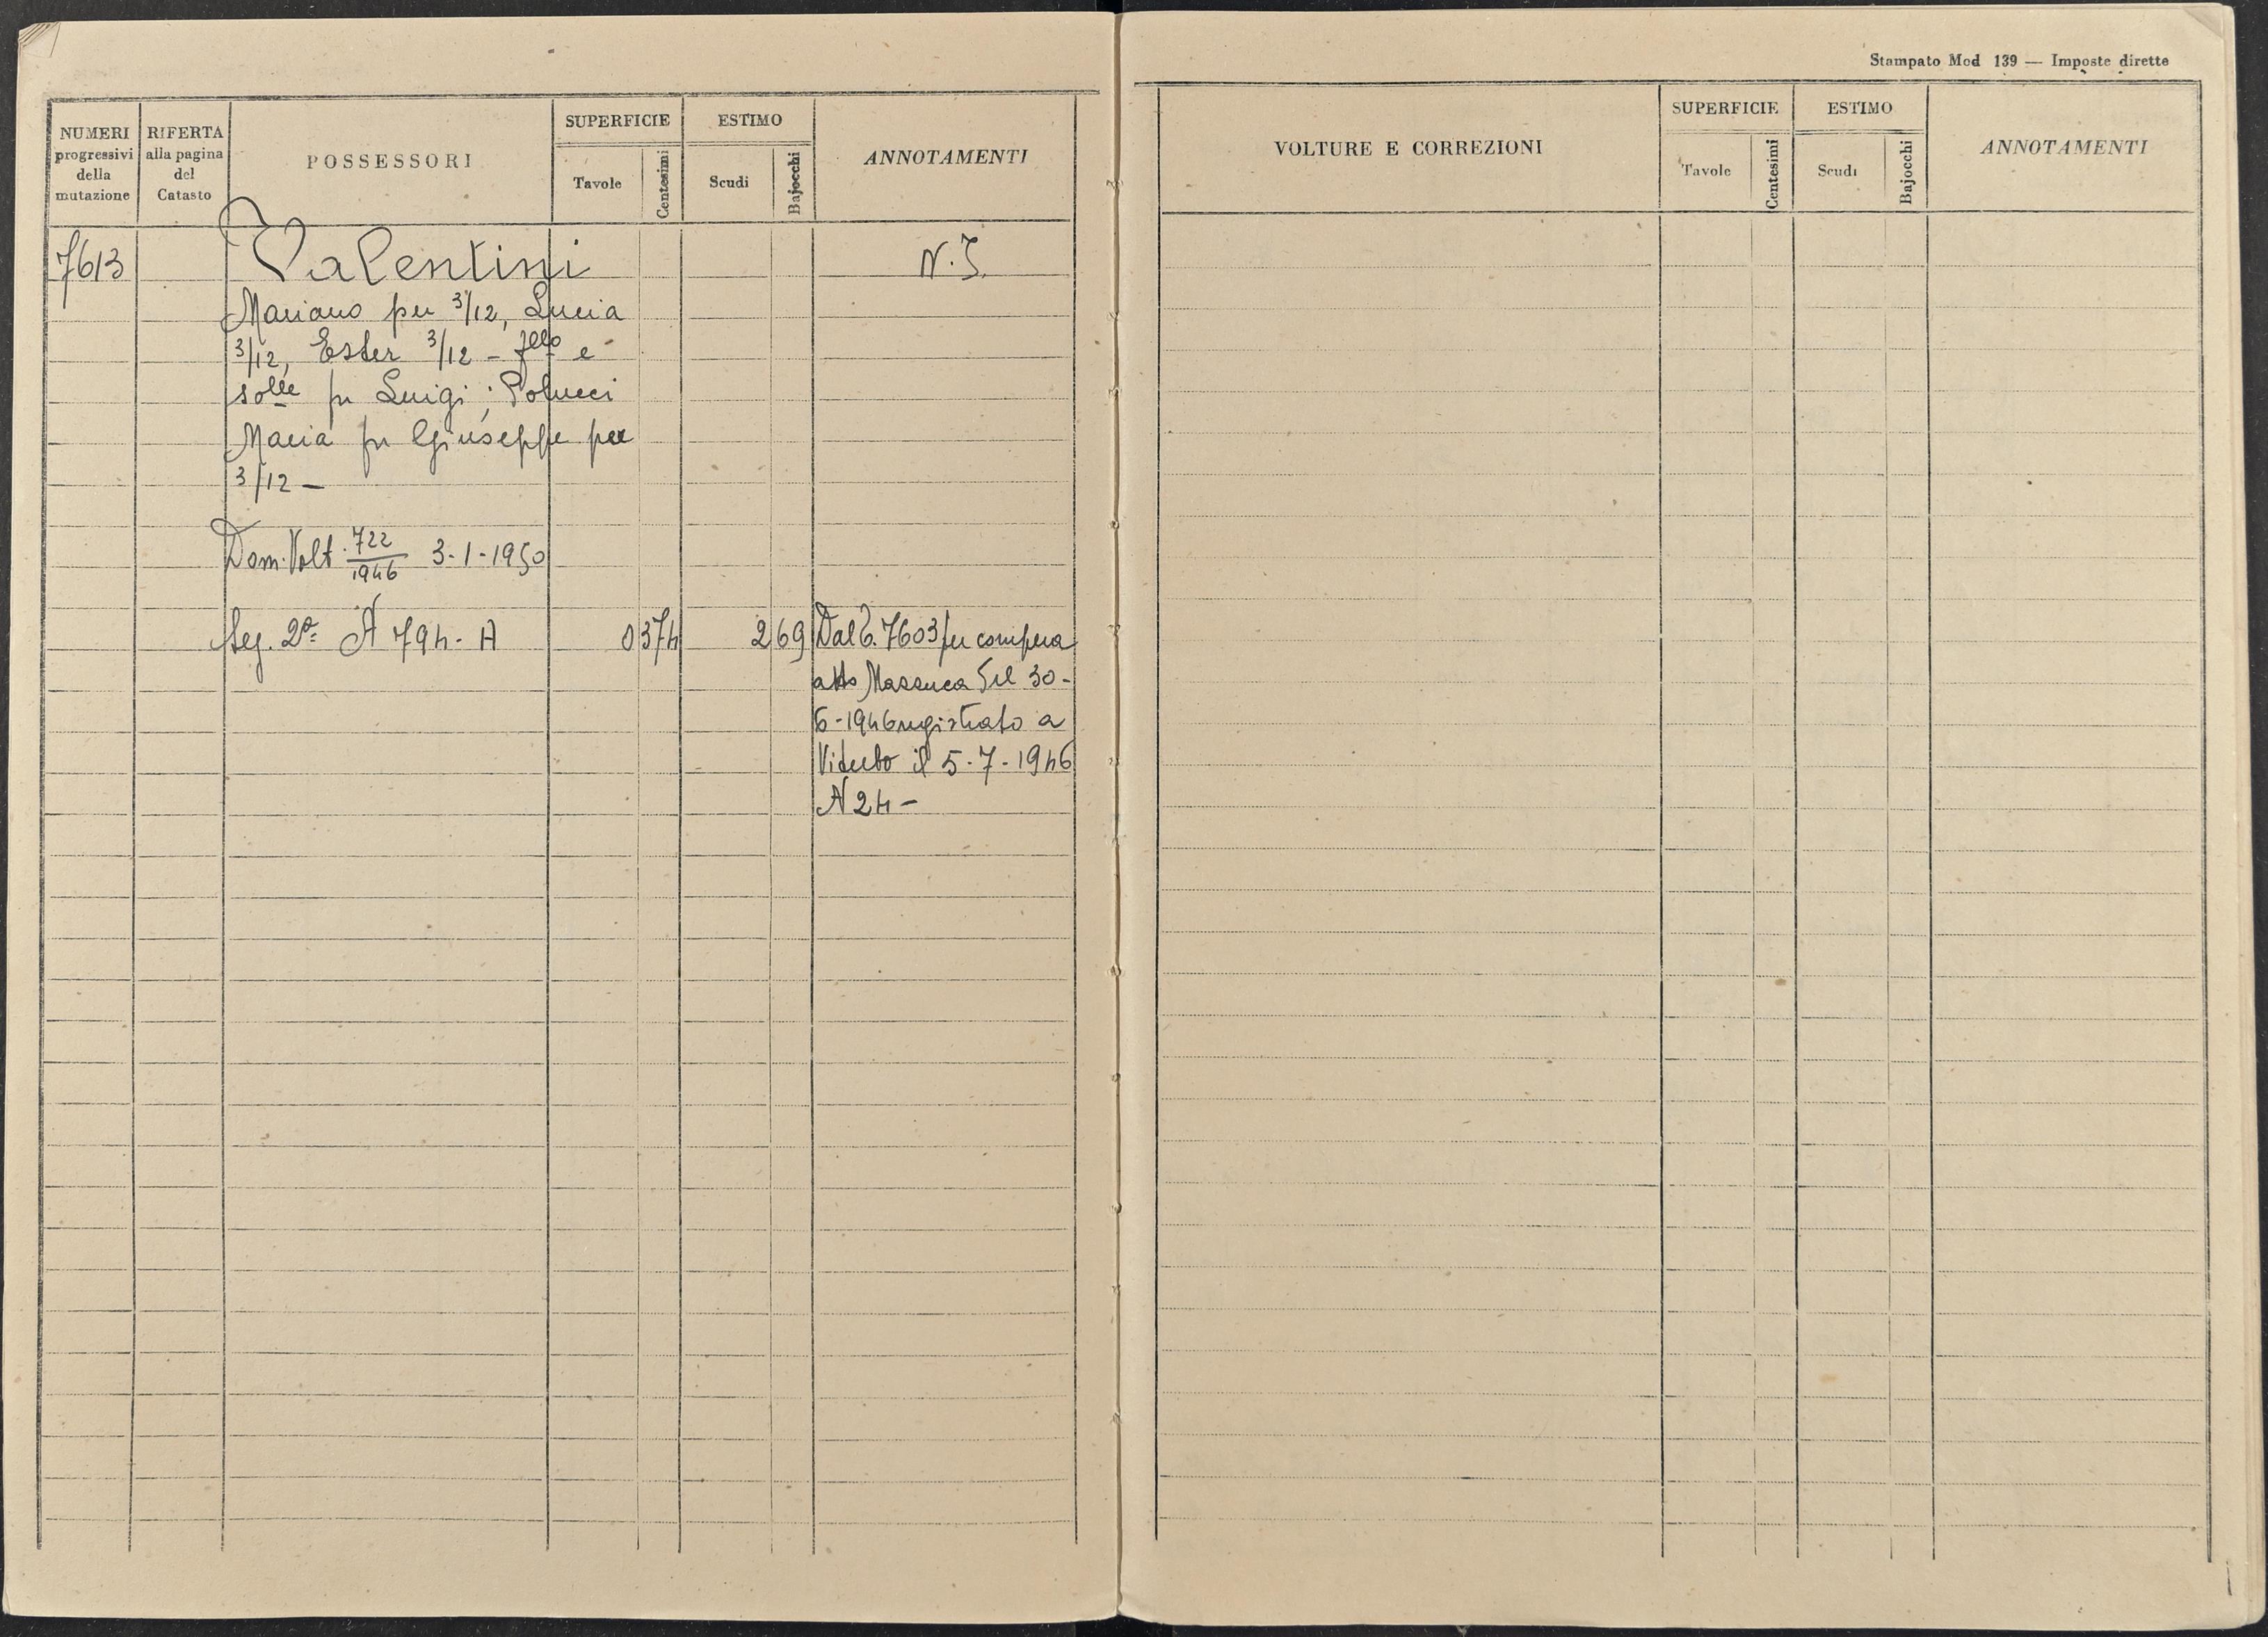 NUMERI
progressivi
della
mutazione
RIFERTA
alla pagina
del
Catasto
POSSESSORI
SUPERFICIE
Tavole
Centesimi
ESTIMO
Scudi
Bajocchi
ANNOTAMENTI
7613
Valentini
N.I.
Mariano per 3/12, Lucia
3/12, Ester 3/12 - e
solle fu Luigi; Polucci
Maria fu Giuseppe per
3/12 -
Dom. Volt. 722/1946 3-1-1950
Seg. 2a N 794-A
0 374
2 69
Dal 7603 per compera
atto Massuca del 30-
6-1946 registrato a
Viterbo il 5-7-1946
N 24-
Stampato Mod 139 — Imposte dirette
VOLTURE E CORREZIONI
SUPERFICIE
Tavole
Centesimi
ESTIMO
Scudi
Bajocchi
ANNOTAMENTI